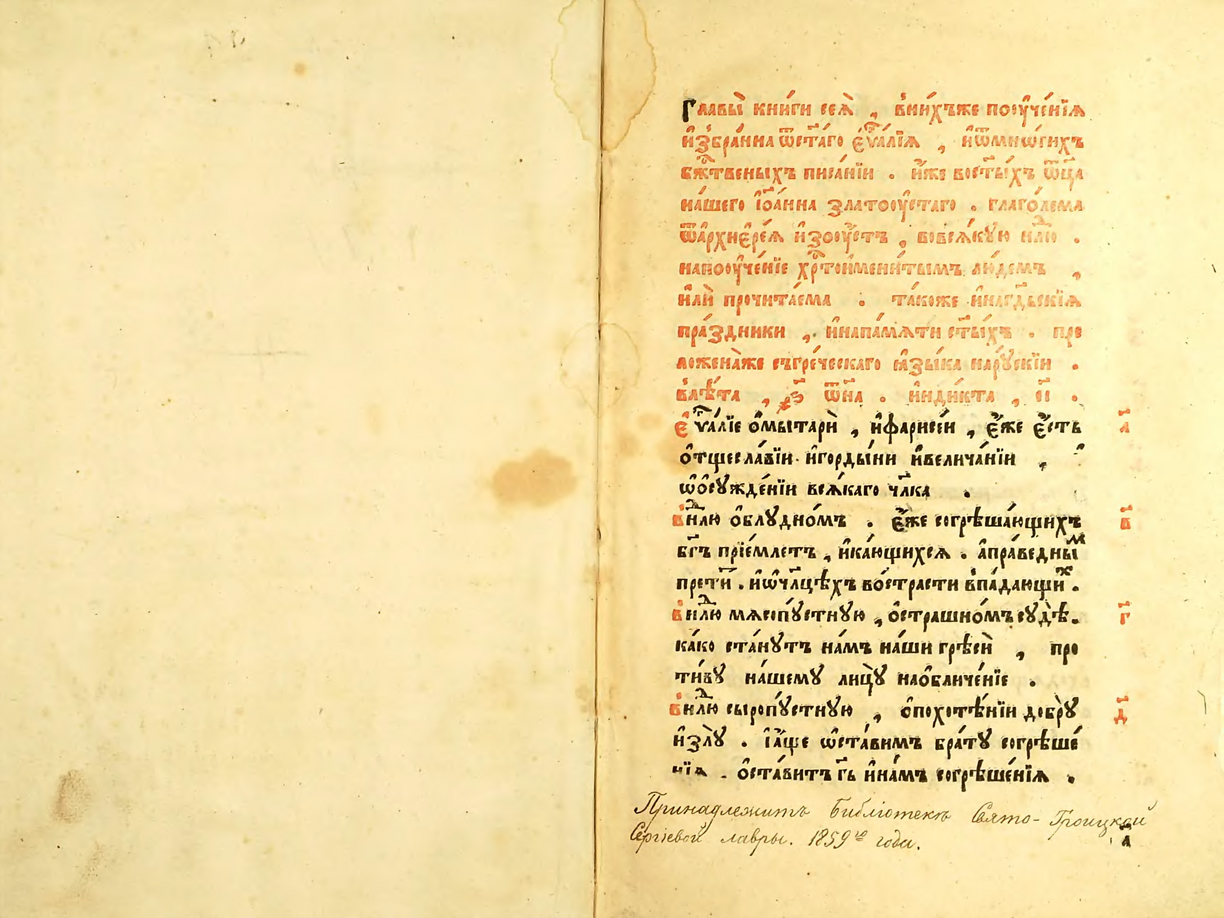 Главы̀ кни́ги сеѧ̀ , в̾ни́хъже поꙋче́нїѧ
и҆збра́нна ѿст҃а́го є҆ѵⷢ҇а́лїѧ , и҆ѿмнѡ́гихъ
бж҃е́твеныхъ писа́нїи . и҆́же во ст҃ы́хъ ѿц҃а
на́шего і҆ѡа́нна златоꙋ́стаго . глаго́лема
ѿа҆рхиє҆ре́ѧ и҆зоꙋ́стъ , вовсѧ́кую нлⷣю .
напоꙋче́нїе хрⷭ҇тоимени́тымъ лю́демъ ,
и҆лѝ прочита́ема . та́коже и҆нагдⷭ҇ьскїѧ
пра́здники , и҆напа́мѧти ст҃ы́хъ . пре
ложена́же съгре́ческаго ꙗ҆зы́ка нарꙋ́скїи .
влѣ́та , ҂з҃ ѿн҃а . и҆нди́кта , є҃і .
є҆ѵⷢ҇а́лїе ѡ҆мытарѝ , и҆фарисе́и , є҆́же є҆́сть
ѻ҆тщесла́вїи и҆горды́ни и҆велича́нїи ,
ѡ҆ѻ҆сꙋжде́нїи всѧ́каго чл҃ка .
внлⷣю ѻ҆блꙋ́дномъ . є҆́же согрѣша́ющихъ
бг҃ъ прїе́млетъ , и҆ка́ющихсѧ . а҆пра́ведныⷨ
прети́ . и҆ѡ҆чл҃цѣхъ во́страсти в̾па́дающиⷯ .
внлⷣю мѧсопꙋ́стную , ѻ҆стра́шномъ сꙋдѣ̀ .
ка́ко ста́нꙋтъ на́мъ на́ши грѣсѝ , про
ти́вꙋ на́шемꙋ лицꙋ̀ наѡ҆бличе́нїе .
внлⷣю сыропꙋ́стную , ѻ҆похотѣ́нїи добрꙋ̀
и҆злꙋ̀ . і҆а҆́ще ѡ҆ста́вимъ бра́тꙋ согрѣше́
нїѧ . ѻ҆ста́витъ гь҃ и҆на́мъ согрѣше́нїѧ .
а҃
в҃
г҃
д҃
Принадлежитъ библіотекѣ Свято-Троицкой
Сергіевой лавры. 1859го года.
а